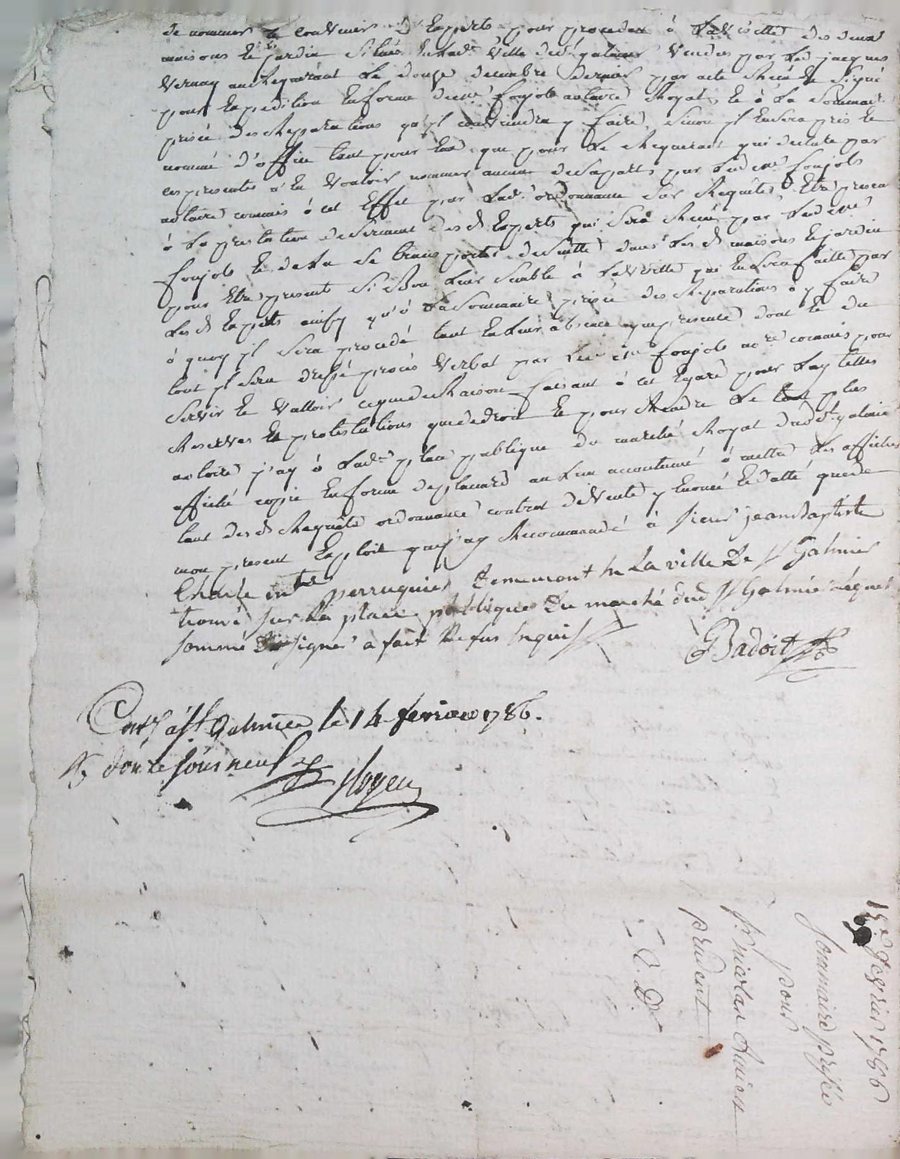 de nommer & convenir d'Experts pour proceder à la visitte des deux
maisons et jardin situés en lad.e ville de s.t galmier vendus par led. jacques
Verney au Requerant le douze decembre dernier par acte Reçu et signé
pour Expedition En forme de me. foujols notaire Royal et à la sommaire
prisée des Reparations qu'il conviendra y faire, sinon il En sera pris et
nommé d'office tant pour Eux que pour le Requerant qui declare par
ces presentes n'En vouloir nommer aucun de sa part par led. me. foujols
notaire commis à cet Effet par lad.e ordonnance sur Requete Etre procedé
à la prestation de serment des d. Experts qui sera Reçu par led. me.
foujols et de là se transporter de suitte dans les d. maisons et jardin
pour Etre presents si Bon leur semble à la visitte qui En sera faitte par
les d. Experts ainsy qu'à la sommaire prisée des Reparations à y faire
à quoy il sera procedé tant En leur absence que presence dont et du
tout il sera dressé procès verbal par led. me. foujols no.re commis pour
servir et valloir ce que de Raison faisant à cet Egard pour luy telles
Reserves et protestations que de droit et pour Rendre le tout plus
notoire j'ay à lad.e place publique du marché Royal dud. s.t galmier
affiché copie En forme de placard au lieu accoutumé à mettre les affiches
tant des d. Requete ordonnance contrat de vente y Enoncé et datté que de
mon present Exploit que j'ay Recommandé à sieur jean Baptiste
perruquier demeurant En La ville De s.t Galmier
trouvé sur La place publique Du marché dud s.t Galmier Lequel
sommé De signer a fait Refus Enquis
GBadoit
Con.lé à s.t Galmier le 14 fevrier 1786.
R. dix sous neuf d.
Royeu
15e. fevrier 1786
sommaire prisée
pour
sr. nicolas
prudent
C. D.